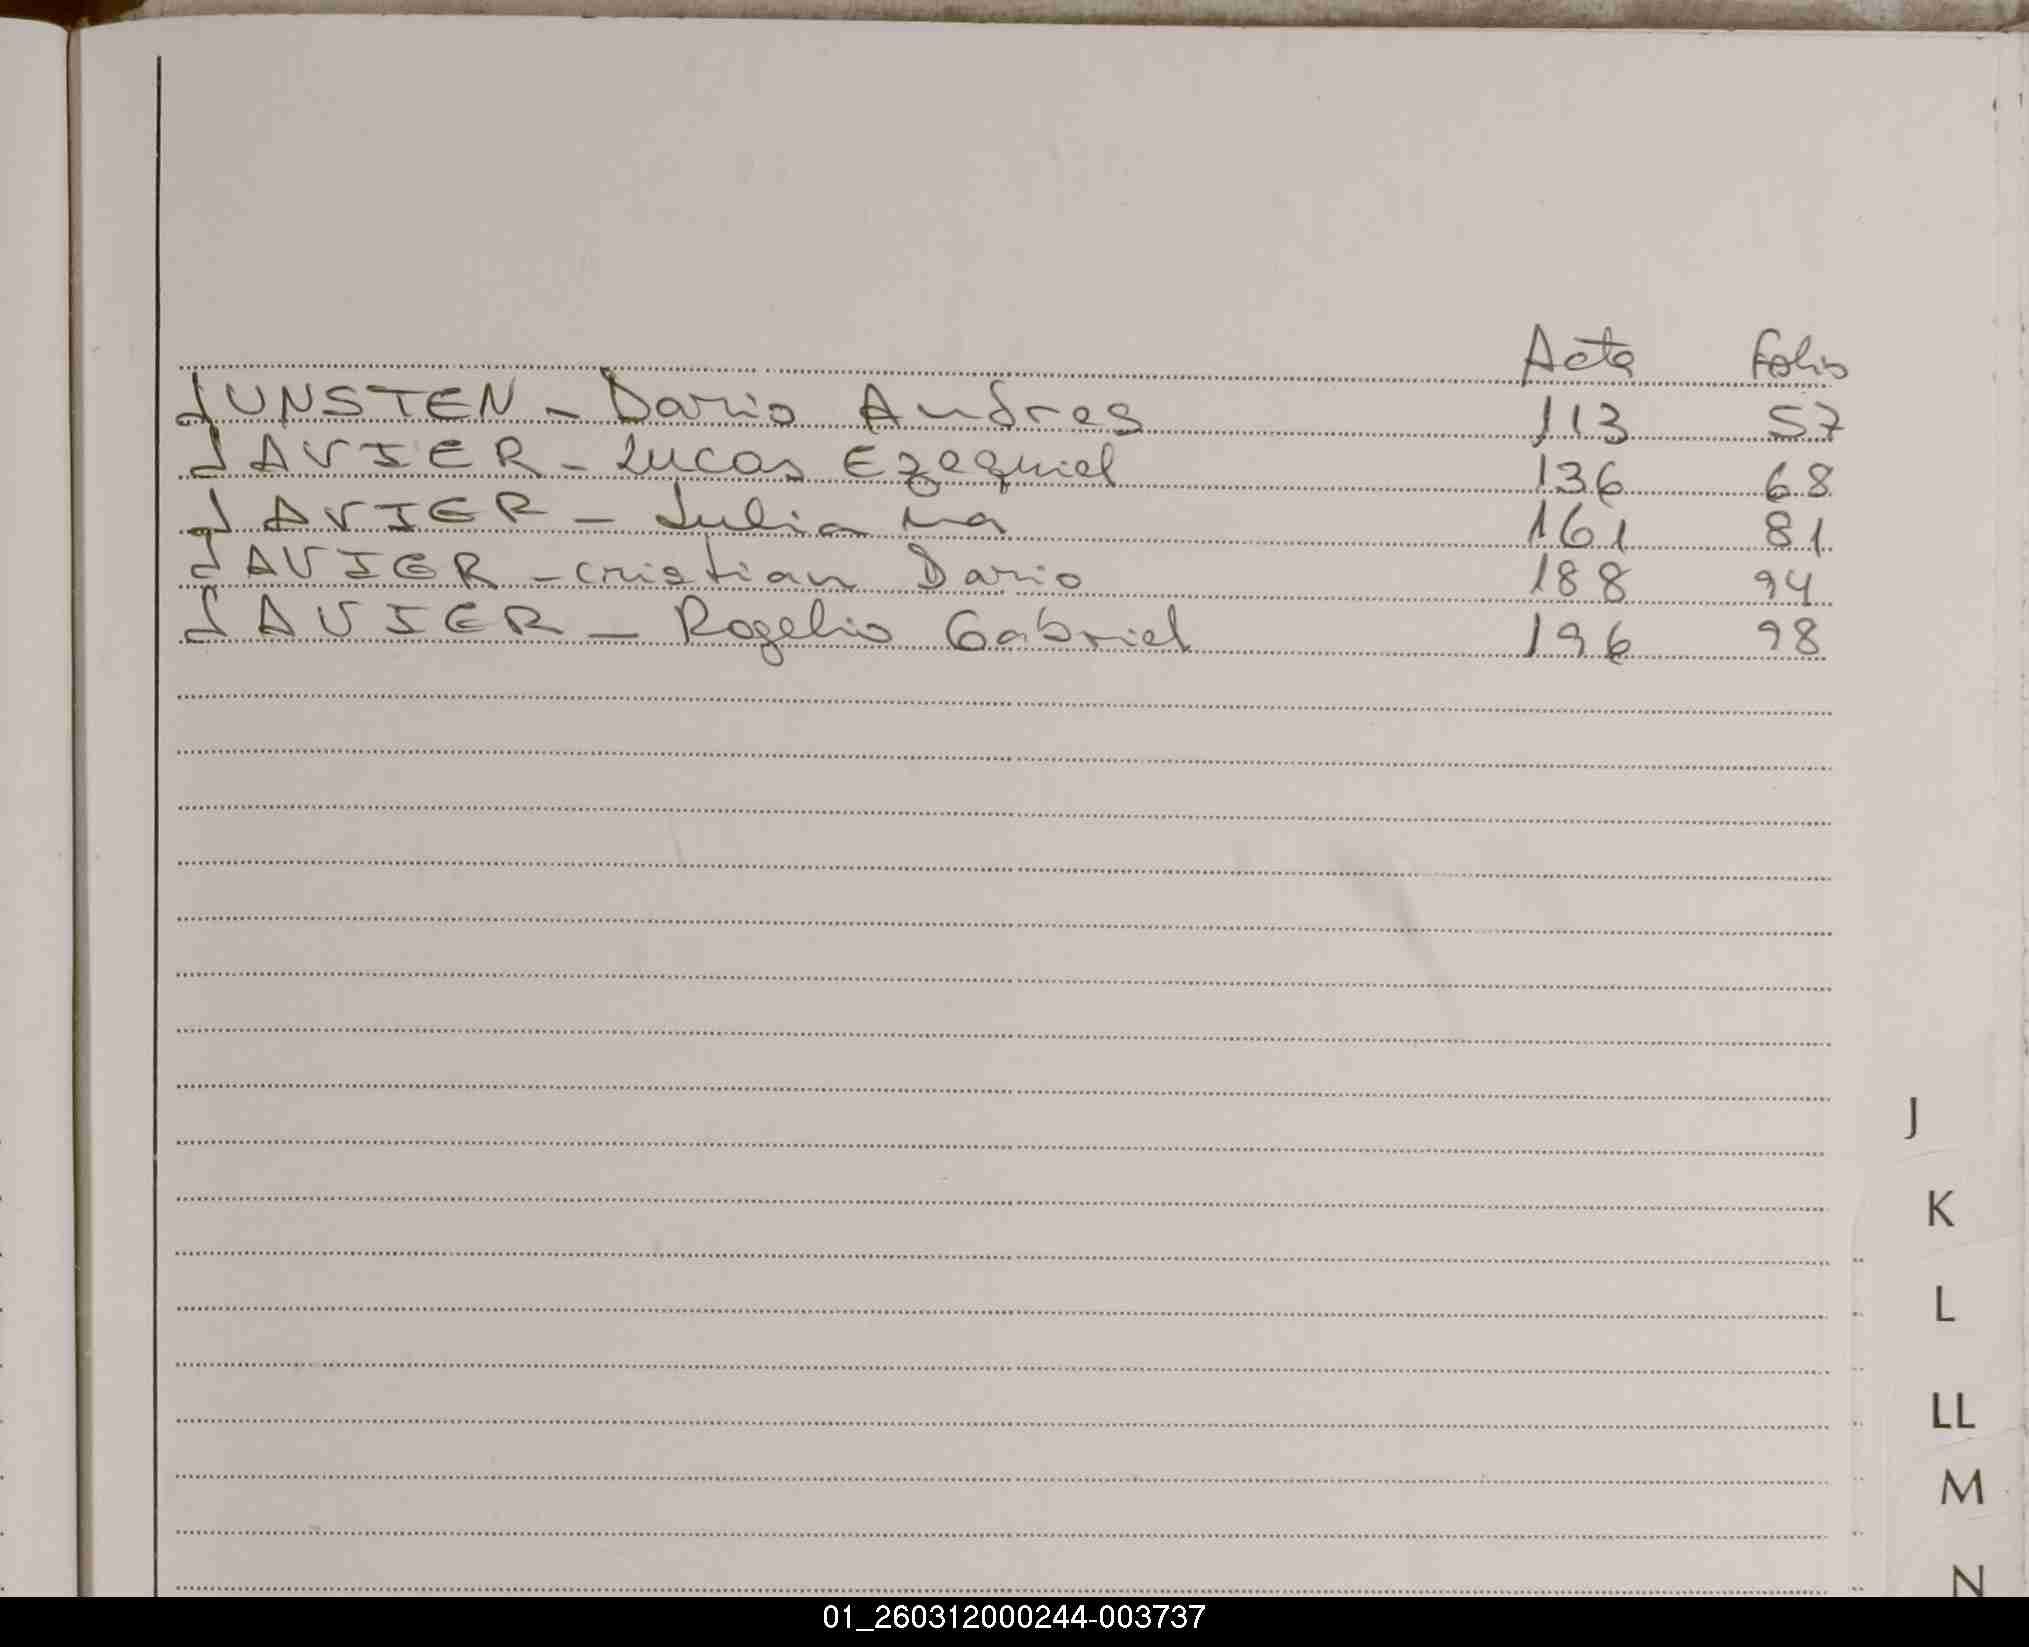 Acta Folio
JUNSTEN - Dario Andres 113 57
JAVIER - Lucas Ezequiel 136 68
JAVIER - Juliana 161 81
JAVIER - Cristian Dario 188 94
JAVIER - Rogelio Gabriel 196 98
J
K
L
LL
M
N
01_260312000244-003737